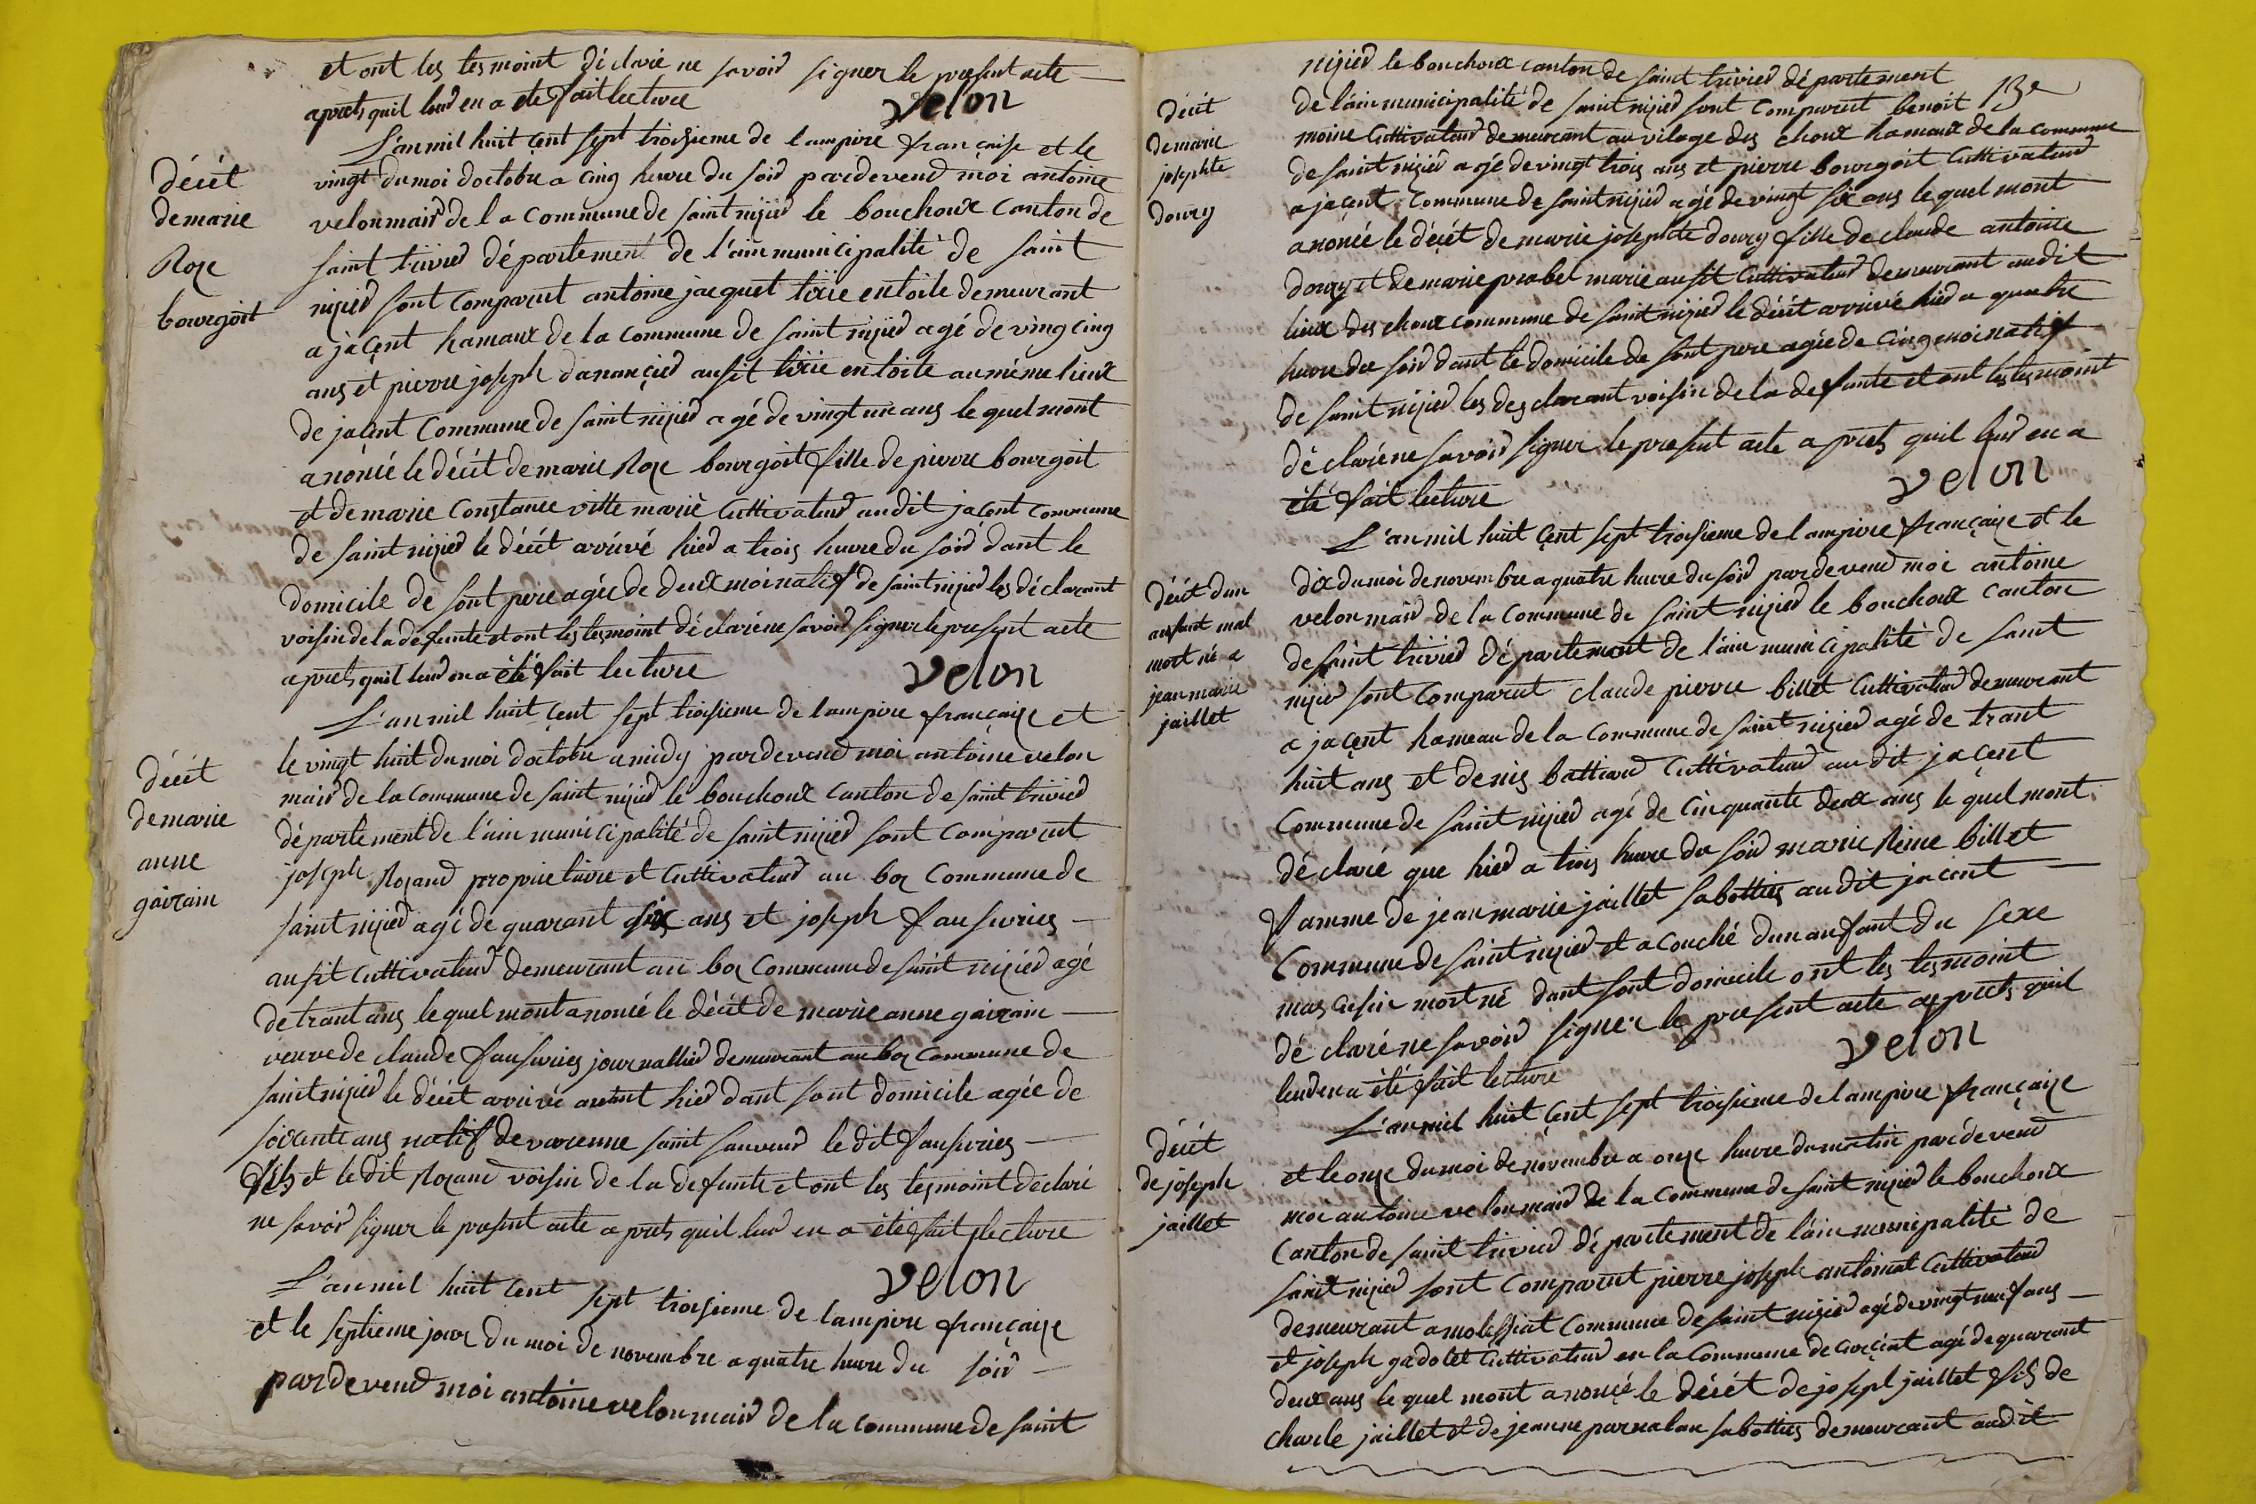 et ont les tesmoint déclaré ne savoir signer le present acte
aprets quil leur en a été fait lecture
velon
L'an mil huit çent sept troisieme de lampire française et le
vingt du moi doctobre a cinq heure du soir pardevend moi antoine
velon mair de la commune de saint nizier le bouchoux canton de
saint trivier département de l'ain municipalité de saint
nizier sont comparut antoine jacquet tixie entoile demeurant
a jaçent hamaux de la commune de saint nizier agé de ving cinq
ans et pierre joseph danançier ausit tixie entoile au même lieux
de jacent commune de saint nizier agé de vingt un ans le quel mont
anoncé le décét de marie Roze bourgoit fille de pierre bourgoit
et de marie Constance vitte marié Cuttivateur audit jacent commune
de saint nizier le décét arrivé hier a trois heure du soir dant le
domicile de sont pere agée de deux moi natif de saint nizier les déclarant
voisin de la defunte et ont les tesmoint déclaré ne savoir signer le present acte
aprets quil leur en a été fait lecture
velon
décét
de marie
Roze
bourgoit
L'an mil huit çent sept troisieme de lampire française et
le vingt huit du moi doctobre a midy pardevend moi antoine velon
mair de la commune de saint nizier le bouchoux canton de saint trivier
département de l'ain municipalité de saint nizier sont comparut
joseph Rozand proprietaire et Cuttivateur au boz Commune de
saint nizier agé de quarant six ans et joseph fausivries
ausit cuttivateur demeurant au boz Commune de saint nizier agé
de trant ans le quel mont anoncé le décét de marie anne gairain
veuve de claude fausivries journallier demeurant au boz commune de
saint nizier le décét arrivé avant hier dant sont domicile agée de
soixante ans natif de varenne saint sauveur le dit fausivries
fils et le dit Rozand voisin de la defunte et ont les tesmoint déclaré
ne savoir signer le present acte aprets quil leur en a été fait lecture
velon
décét
de marie
anne
gairain
L'an mil huit çent sept troisieme de lampire française
et le septieme jour du moi de novembre a quatre heure du soir
pardevend moi antoine velon mair de la commune de saint
nizier le bouchoux canton de saint trivier département
de l'ain municipalité de saint nizier sont comparut benoit
moine Cuttivateur demeurant au vilage des choux hamaux de la commune
de saint nizier agé de vingt trois ans et pierre bourgoit Cuttivateur
a jaçent Commune de saint nizier agé de vingt six ans le quel mont
anoncé le décét de marie josephte dourg fille de claude antoine
dourg et de marie prabel marie ausit Cuttivateur demeurant audit
lieux des choux commune de saint nizier le décét arrivé hier a quatre
heure du soir dant le domicile de sont pere agée de cinq moi natif
de saint nizier les desclarant voisin de la defunte et ont les tesmoint
déclaré ne savoir signer le present acte aprets quil leur en a
été fait lecture
velon
décét
de marie
josephte
dourg
L'an mil huit çent sept troisieme de lampire française et le
dix du moi de novembre a quatre heure du soir pardevend moi antoine
velon mair de la Commune de saint nizier le bouchoux canton
de saint trivier département de l'ain municipalité de saint
nizier sont comparut claude pierre billet Cuttivateur demeurant
a jaçent hameau de la Commune de saint nizier agé de trant
huit ans et denis battiard Cuttivateur au dit jaçent
Commune de saint nizier agé de Cinquante deux ans le quel mont
déclaré que hier a trois heure du soir marie Reine billet
famme de jean marie jaillet sabotties audit jacent
Commune de saint nizier et acouché dun anfant du sexe
mascusin mort né dant sont domicile ont les tesmoint
déclaré ne savoir signer le present acte aprets quil
leud en a été fait lecture
velon
décét dun
anfant mal
mort né a
jean marie
jaillet
L'an mil huit çent sept troisieme de lampire française
et le onze du moi de novembre a onze heure du matin pardevend
moi antoine velon mair de la Commune de saint nizier le bouchoux
Canton de saint trivier département de l'ain municipalité de
saint nizier sont comparut pierre joseph antoinat Cuttivateur
demeurant a molissiat Commune de saint nizier agé de vingt neuf ans
et joseph gadolet Cuttivateur en la Commune de curciat agé de quarant
deux ans le quel mont anoncé le décét de joseph jaillet fils de
charle jaillet et de jeanne parnalan sabotties demeurant audit
décét
de joseph
jaillet